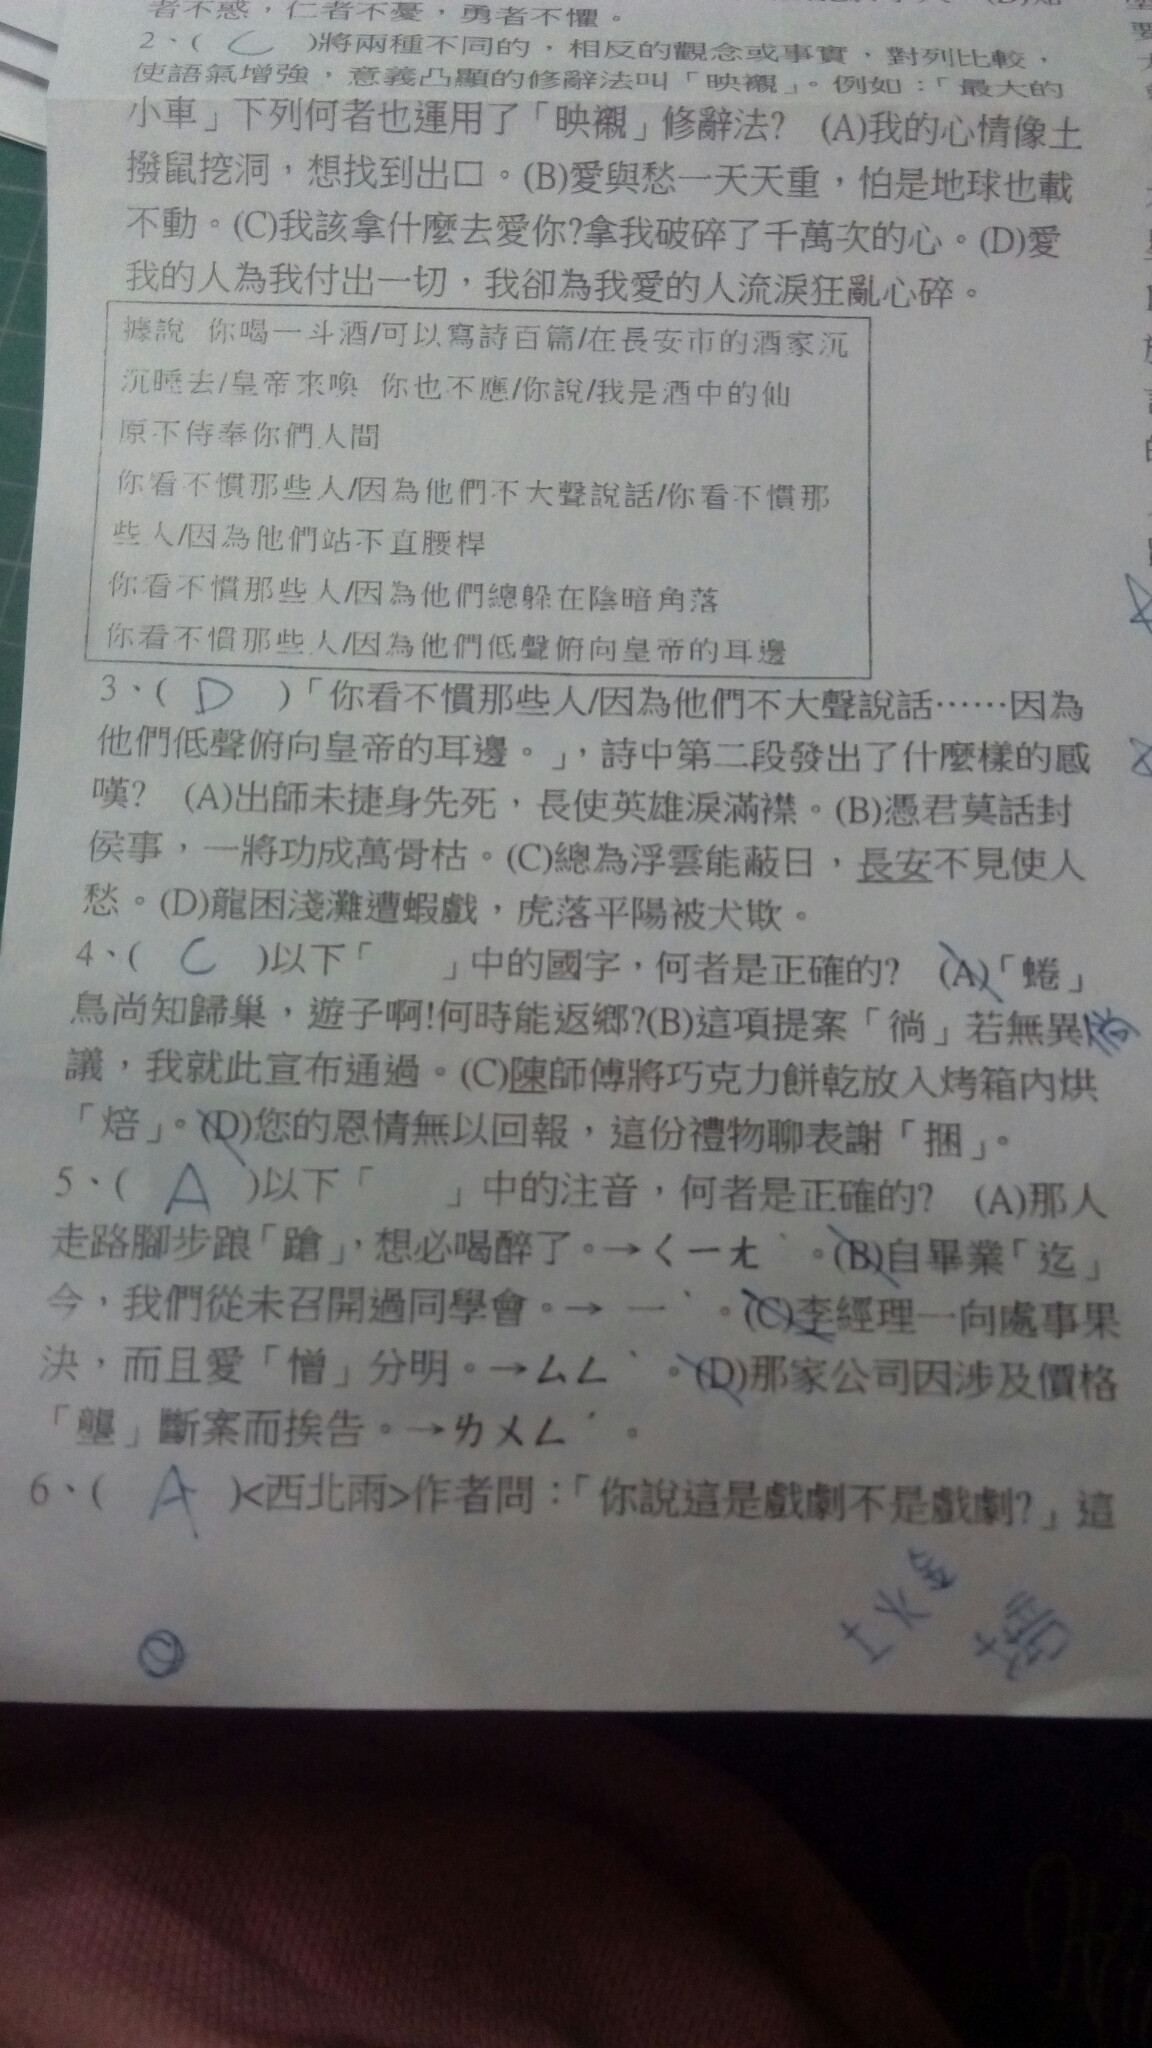 者不惑，仁者不憂，勇者不懼。
2、( C )將兩種不同的，相反的觀念或事實，對列比較，
使語氣增強，意義凸顯的修辭法叫「映襯」。例如：「最大的
小車」下列何者也運用了「映襯」修辭法? (A)我的心情像土
撥鼠挖洞，想找到出口。(B)愛與愁一天天重，怕是地球也載
不動。(C)我該拿什麼去愛你?拿我破碎了千萬次的心。(D)愛
我的人為我付出一切，我卻為我愛的人流淚狂亂心碎。
據說 你喝一斗酒/可以寫詩百篇/在長安市的酒家沉
沉睡去/皇帝來喚 你也不應/你說/我是酒中的仙
原不侍奉你們人間
你看不慣那些人/因為他們不大聲說話/你看不慣那
些人/因為他們站不直腰桿
你看不慣那些人/因為他們總躲在陰暗角落
你看不慣那些人/因為他們低聲俯向皇帝的耳邊
3、( D )「你看不慣那些人/因為他們不大聲說話……因為
他們低聲俯向皇帝的耳邊。」，詩中第二段發出了什麼樣的感
嘆? (A)出師未捷身先死，長使英雄淚滿襟。(B)憑君莫話封
侯事，一將功成萬骨枯。(C)總為浮雲能蔽日，長安不見使人
愁。(D)龍困淺灘遭蝦戲，虎落平陽被犬欺。
4、( C )以下「 」中的國字，何者是正確的? (A)「蜷」
鳥尚知歸巢，遊子啊!何時能返鄉?(B)這項提案「徜」若無異
議，我就此宣布通過。(C)陳師傅將巧克力餅乾放入烤箱內烘
「焙」。(D)您的恩情無以回報，這份禮物聊表謝「捆」。
5、( A )以下「 」中的注音，何者是正確的? (A)那人
走路腳步踉「蹌」，想必喝醉了。→ㄑㄧㄤˋ。(B)自畢業「迄」
今，我們從未召開過同學會。→ㄧˋ。(C)李經理一向處事果
決，而且愛「憎」分明。→ㄙㄥˋ。(D)那家公司因涉及價格
「壟」斷案而挨告。→ㄌㄨㄥˊ。
6、( A )<西北雨>作者問：「你說這是戲劇不是戲劇?」這
土火金